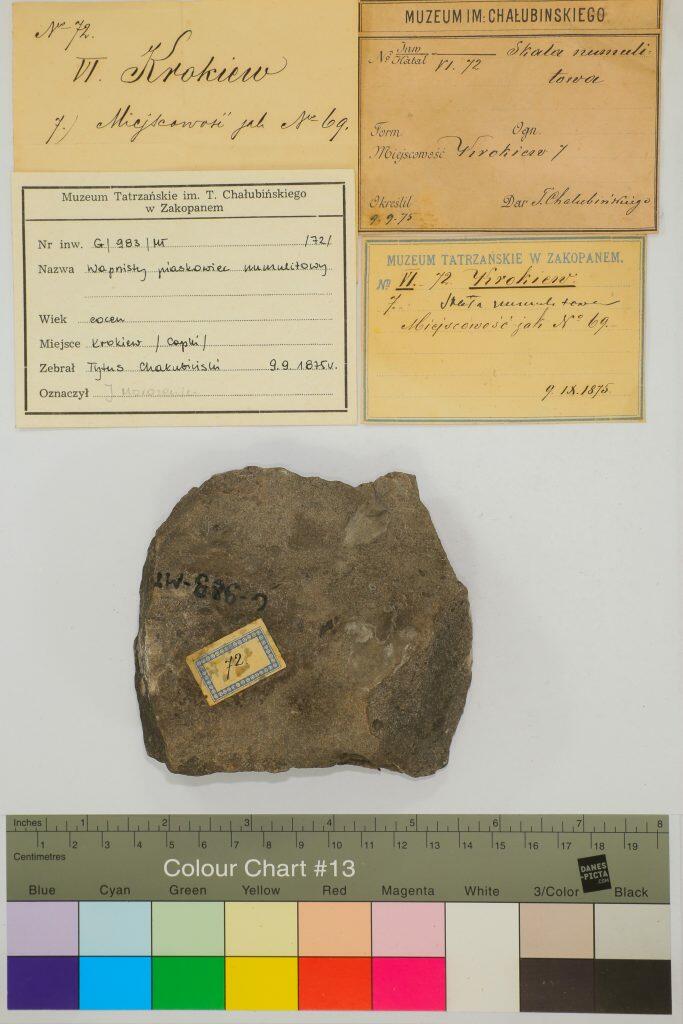 No 72.
VI. Krokiew
7.) Miejscowość jak No 69.
MUZEUM IM: CHAŁUBIŃSKIEGO
No Inw
Katal VI. 72 Skała numuli-
towa
Form. Ogn.
Miejscowość Krokiew 7
Określił Dar T. Chałubińskiego
9.9.75
Muzeum Tatrzańskie im. T. Chałubińskiego
w Zakopanem
Nr inw. G/983/MT /72/
Nazwa Wapnisty piaskowiec numulitowy
Wiek eocen
Miejsce Krokiew /Capki/
Zebrał Tytus Chałubiński 9.9.1875r.
Oznaczył J.
MUZEUM TATRZAŃSKIE W ZAKOPANEM.
No VI. 72 Krokiew.
7. Skała numulitowa
Miejscowość jak No 69.
9. IX. 1875.
G-983-MT
72
Inches 1 2 3 4 5 6 7 8
1 2 3 4 5 6 7 8 9 10 11 12 13 14 15 16 17 18 19
Centimetres
Colour Chart #13
DANES
-PICTA
.COM
Blue Cyan Green Yellow Red Magenta White 3/Color Black